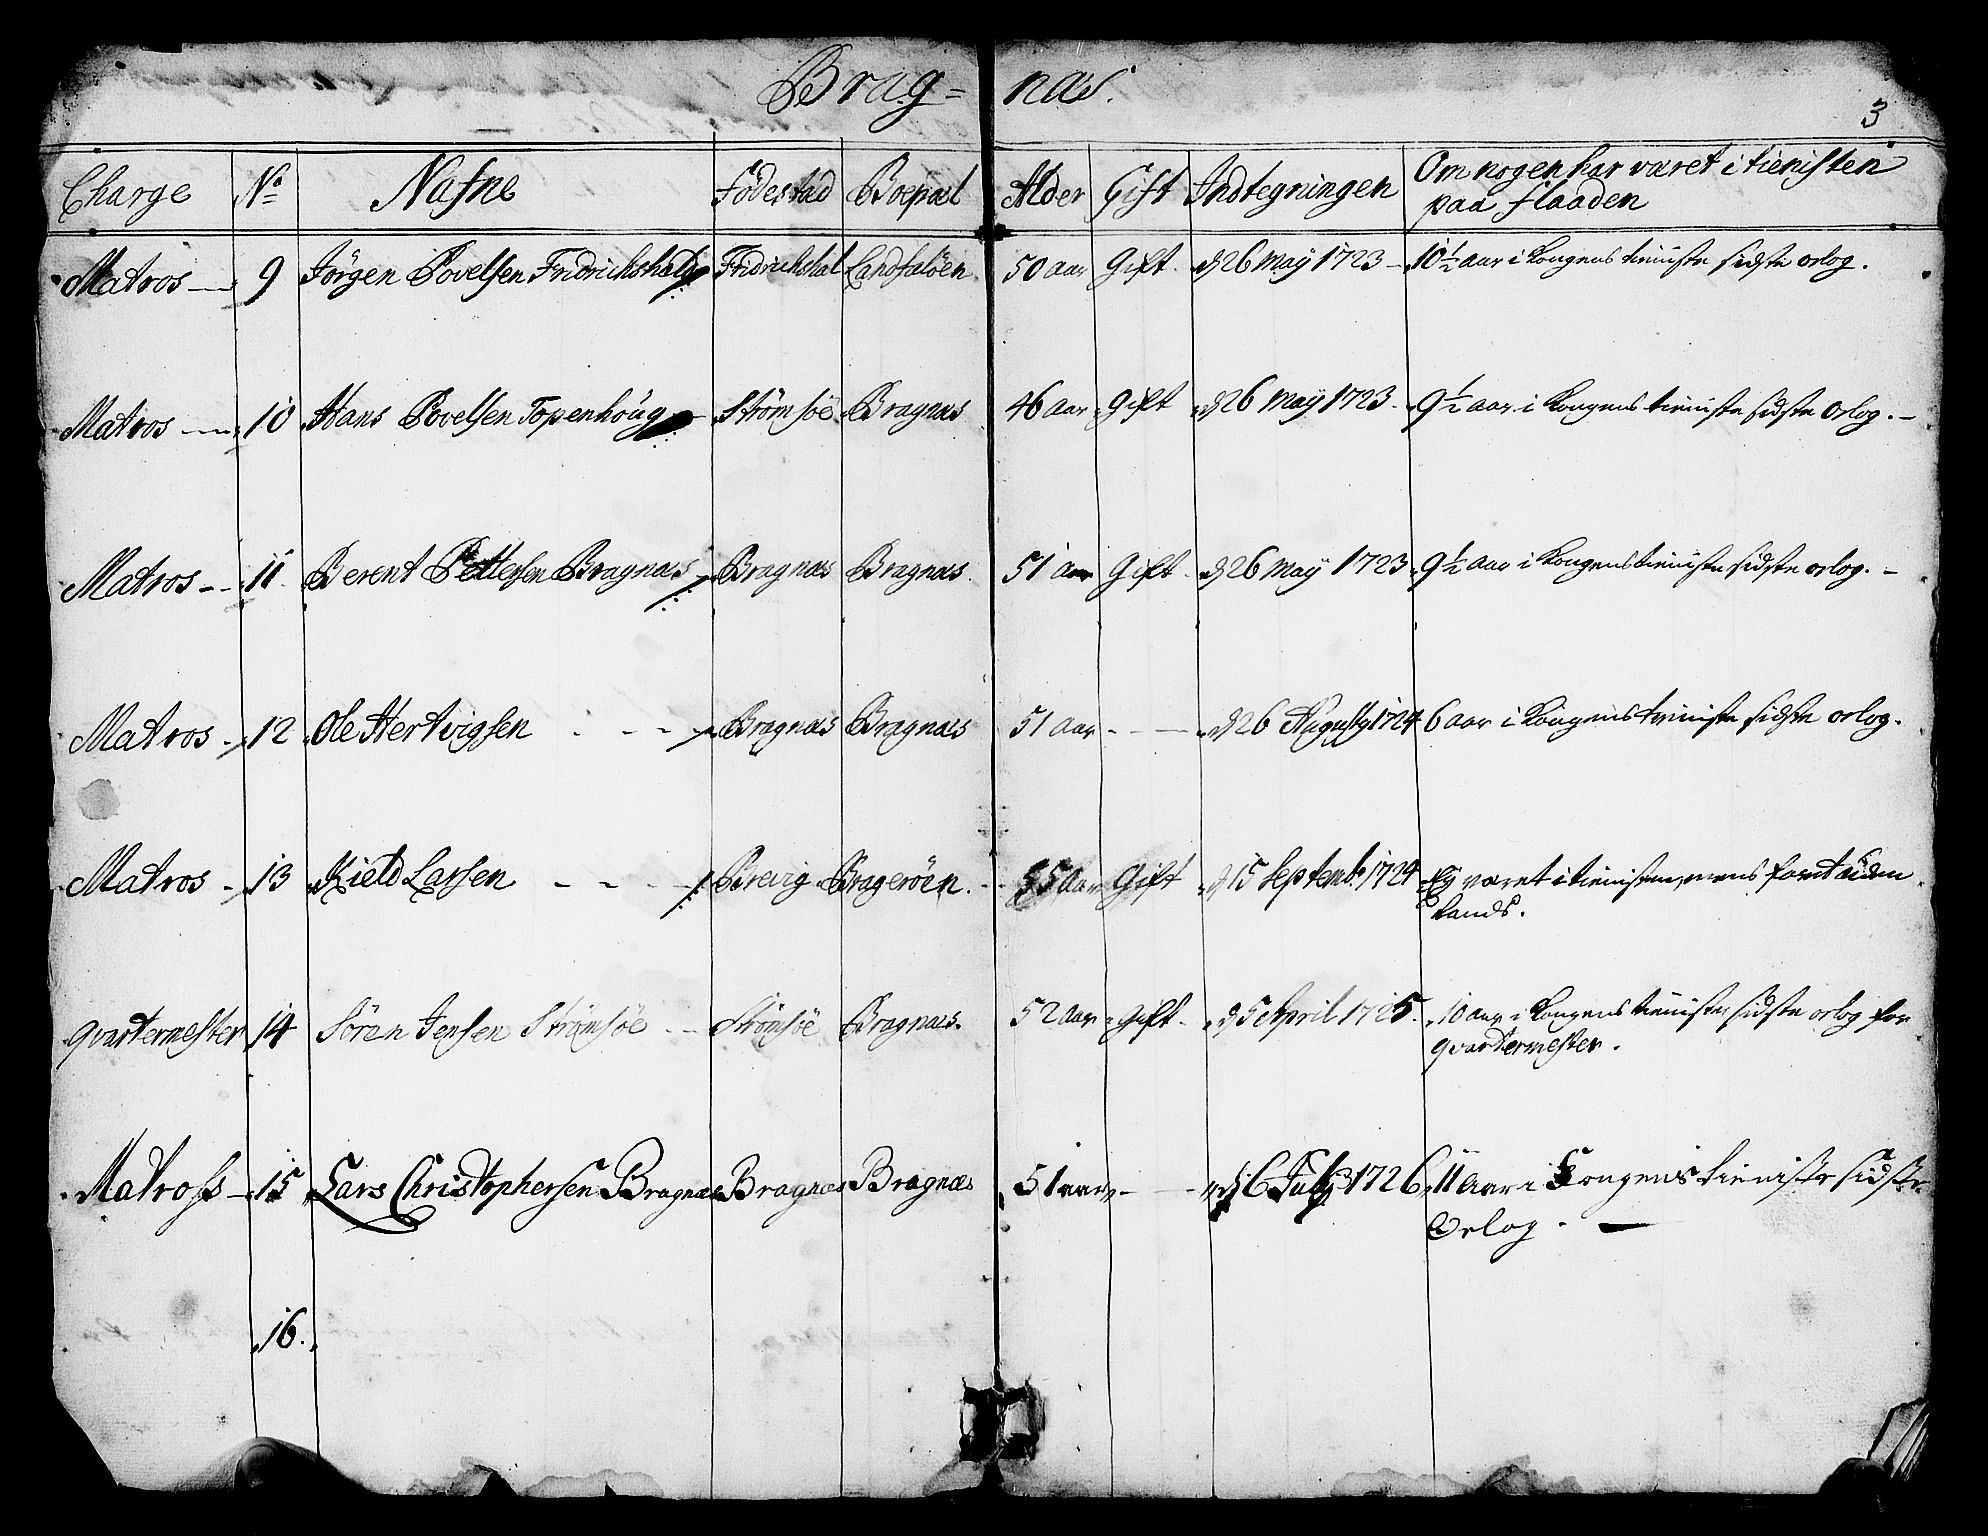 Brag= næs.
3
Charge No Nafne Födestad Boepæl Alder Gift Indtegningen Om nogen har været i tienisten
paa flaaden
Matros 9 Jörgen Povelsen Fridrichshald Fridrichshal Landfaløen 50 aar Gift d 26 May 1723 10½ aar i Kongens tieniste sidste orlog.
Matros 10 Hans Povelsen Topenhoug Strömsöe Bragnæs 46 aar Gift d 26 May 1723 9½ aar i Kongens tieniste sidste orlog.
Matros 11 Berent Pettersen Bragnæs Bragnæs Bragnæs 51 aar Gift d 26 May 1723 9½ aar i Kongens tieniste sidste orlog.
Matros 12 Ole Hertvigsen Bragnæs Bragnæs 51 aar d 26 Augusty 1724 6 aar i Kongens tieniste sidste orlog.
Matros 13 Kield Larsen Brevig Brageröen 55 aar Gift d 15 Septemb: 1724 Ey været i tienisten, mens faret
Lands.
qvartermester 14 Sören Jensen Strömsöe Strömsöe Bragnæs. 52 aar Gift d 5 April 1725. 10 aar i Kongens tieniste sidste orlog for
qvartermester.
Matross 15 Lars Christophersen Bragnæs Bragnæs Bragnæs 51 aar d 6 July 1726 11 aar i Kongens tieniste sidste
Orlog.
16.